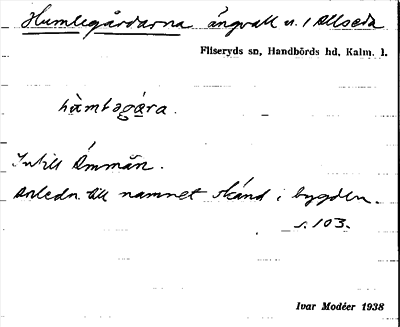 Humlegårdarna ängvall u. / Allseda
Fliseryds sn, Handbörds hd, Kalm. l.
hàmləgá̱ra.
Intill Ämmån.
Anledn. till namnet okänd i bygden.
s. 103.
Ivar Modéer 1938